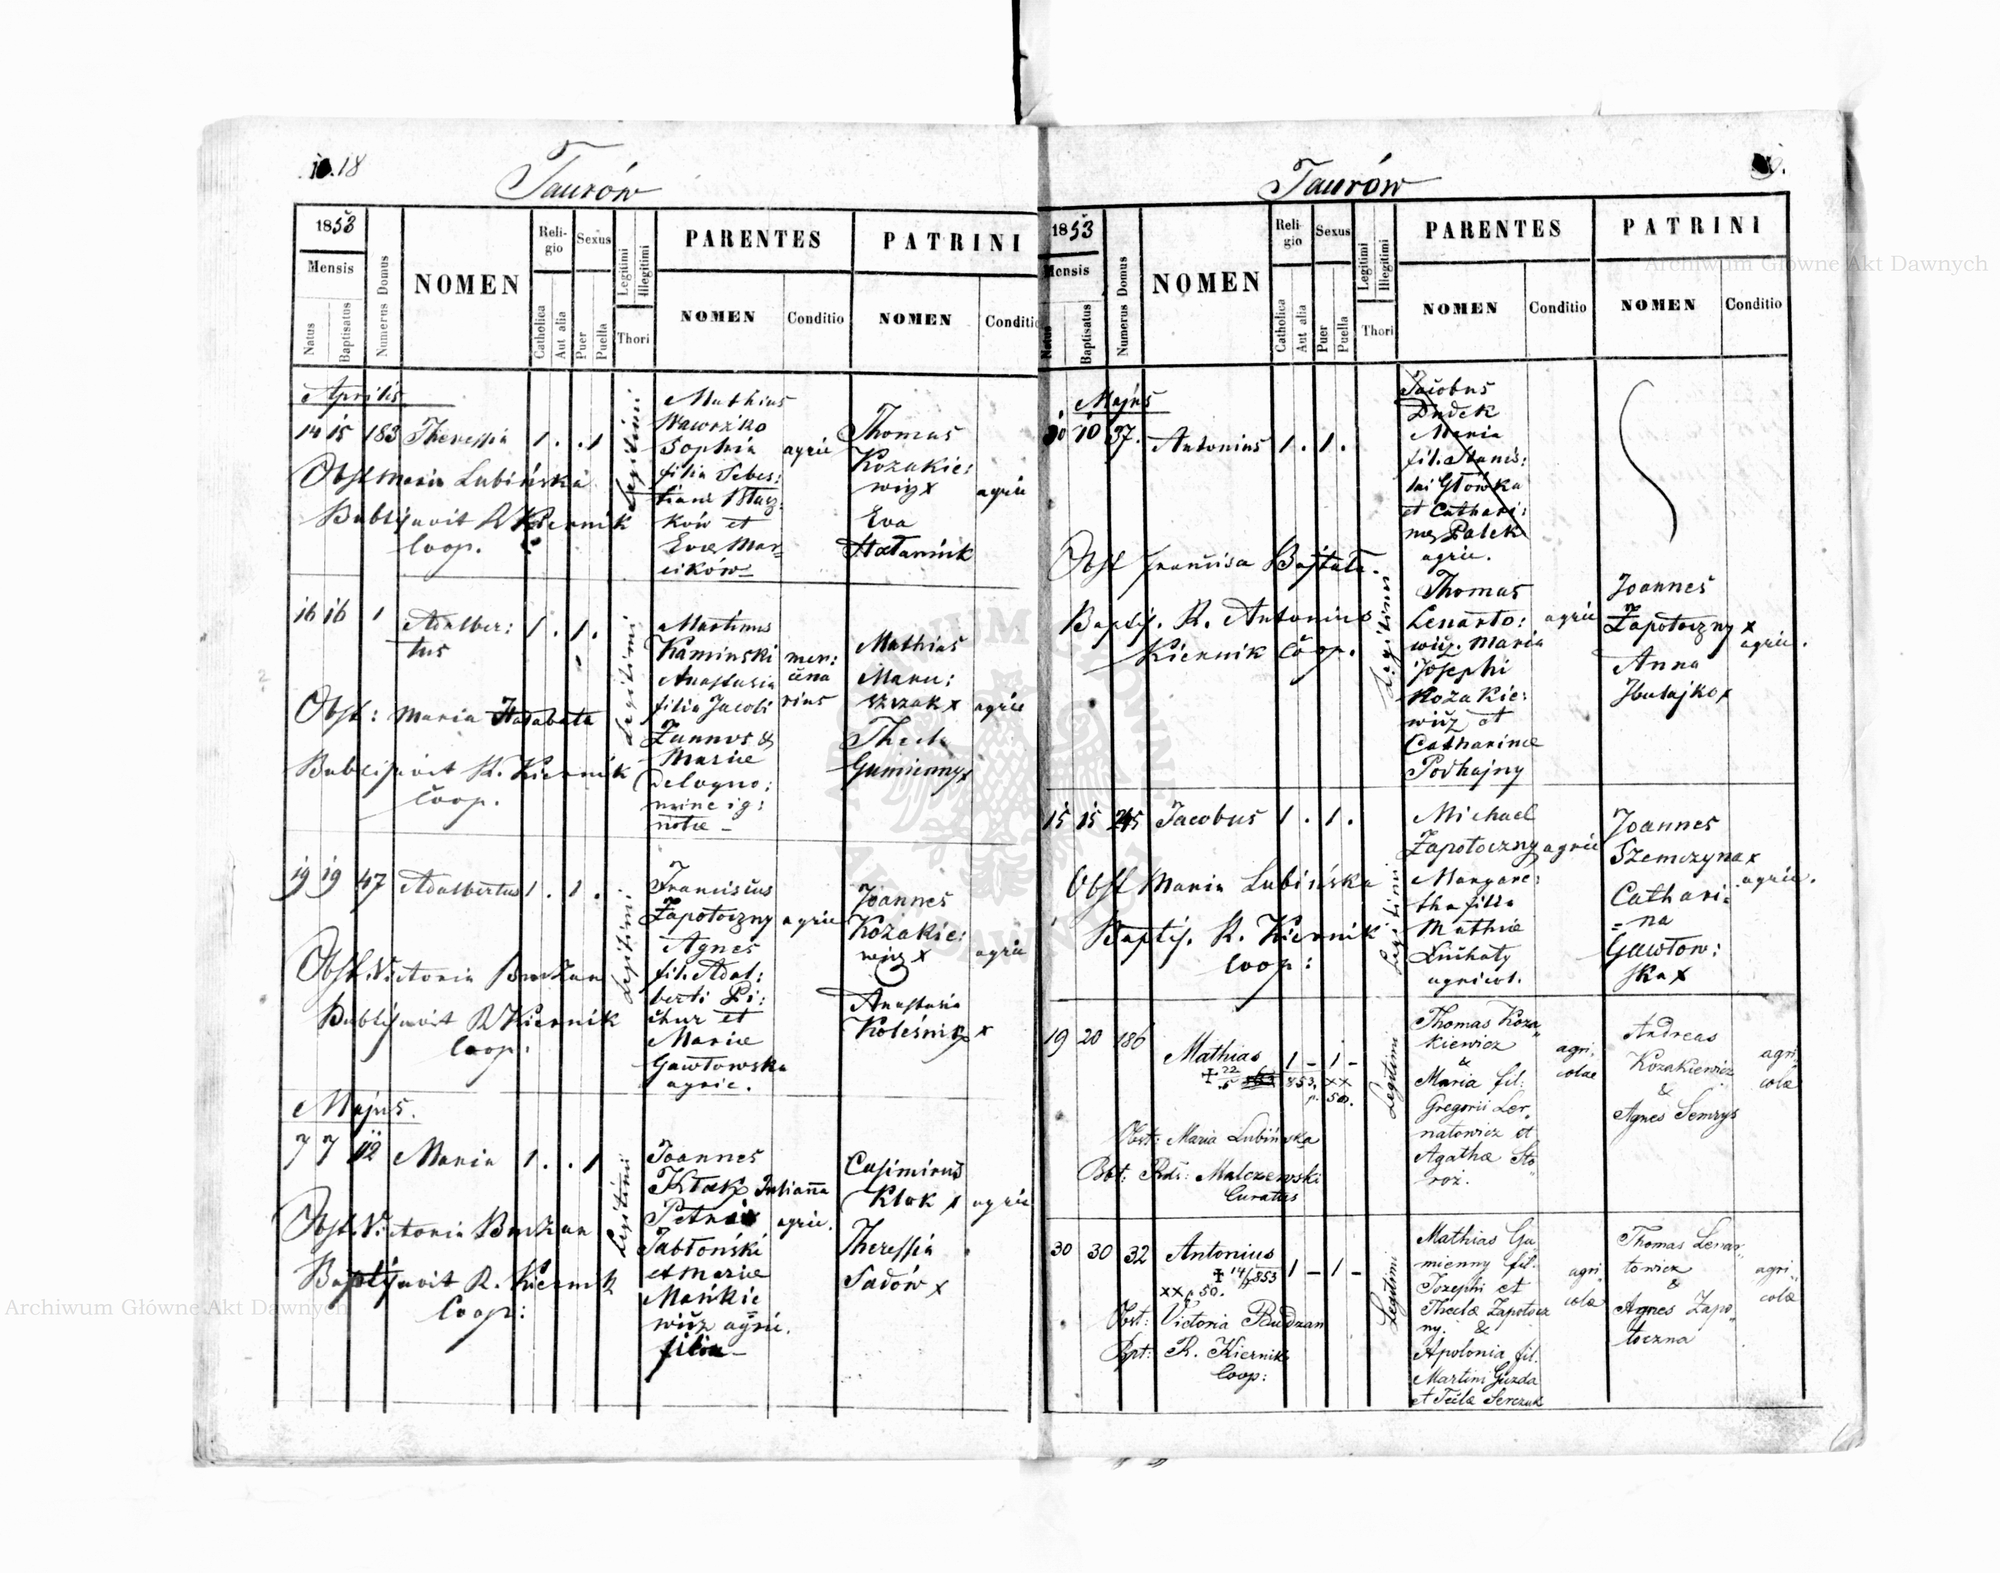 18
Taurów
1853
Mensis
Natus
Baptisatus
Numerus Domus
NOMEN
Religio
Catholica
Aut alia
Sexus
Puer
Puella
Legitimi
Illegitimi
Thori
PARENTES
NOMEN
Conditio
PATRINI
NOMEN
Conditio
Aprilis
14 15 183 Theressia 1 . . 1
Legitimi
Mathias
Wawrzko
Sophia
filia Sebes:
tiani
ków et
Evae Mar=
cików
agric
Thomas
Kozakie:
wiz x
Eva
agric
Obst Maria Lubińska
Babtisavit R Kiernik
Coop.
16 16 1 Adalber:
tus
1 . 1 .
Legitimi
Martinus
Kaminski
Anastasia
filia Jacobi
Zannos &
Mariae
de Cogno:
mine ig:
notae
mer:
cena
rius
Mathias
Manu:
szczak x
Thecla
Gumienny x
agric
Obst: Maria
Babtisavit R. Kiernik
Coop.
19 19 47 Adalbertus 1 . 1 .
Legitimi
Franciscus
Zapotoczny
Agnes
fil. Adal:
berti Pi:
chur et
Mariae
Gawłowska
agric.
agric
Joannes
Kozakie:
wiz x
Anastasia
Koleśnik x
agric
Obst. Victoria Budzan
Babtisavit R Kiernik
Coop:
Majus.
7 7 112 Maria 1 . . 1
Legitimi
Joannes
Kłak Julianna
Petri
Jabłoński
et Mariae
Mańkie
wicz agric.
filia
agric.
Casimirus
Klok x
Theressia
Sadów x
agric
Obst. Victoria Budzan
Baptisavit R. Kiernik
Coop:
Taurów
1853
Mensis
Natus
Baptisatus
Numerus Domus
NOMEN
Religio
Catholica
Aut alia
Sexus
Puer
Puella
Legitimi
Illegitimi
Thori
PARENTES
NOMEN
Conditio
PATRINI
NOMEN
Conditio
Majus
10 10 37. Antonius 1 . 1 .
Jacobus
Dudek
Maria
fil. Stanis:
lai Głowka
et Cathari:
nae Palek
agric.
Legitimi
Thomas
Lenarto:
wicz. Maria
Josephi
Kozakie:
wicz et
Catharinae
Podhajny
agric
Joannes
Zapotoczny x
Anna
Hulajko x
agric.
Obst Francisca Bajtała.
Baptis. R. Antonius
Kiernik Coop.
15 15 245 Jacobus 1 . 1 .
Legitimi
Michael
Zapotoczny
Margare:
tha filia
Mathiae
Łuchaty
agricol.
agric
Joannes
Szemczyna x
Cathari=
=na
Gawłow:
ska x
agric.
Obst Maria Lubińska
Baptis. R. Kiernik
Coop:
19 20 186 Mathias 1 - 1 -
✝ 22/5 853. xx
p. 50.
Legitimi
Thomas Koza
kiewicz
&
Maria fil:
Gregorii Ler=
natowicz et
Agathae Sto
roż.
agri=
colae
Andreas
Kozakiewicz
&
Agnes Semrys
agri=
colae
Obst: Maria Lubińska
Bbt: Rds: Malczewski
Curatus
30 30 32 Antonius 1 - 1 -
✝ 14/6 853
xx p 50.
Legitimi
Mathias Gu
mienny fil.
Jozephi et
Theclae Zapotocz
ny. &
Apolonia fil.
Martini Guzda
et Teclae Serczuk
agri=
colae
Thomas Lenar=
towicz
&
Agnes Zapo=
toczna
agri=
colae
Obst: Victoria Budzan
Bpt: R. Kiernik
Coop:
Archiwum Główne Akt Dawnych
Archiwum Główne Akt Dawnych